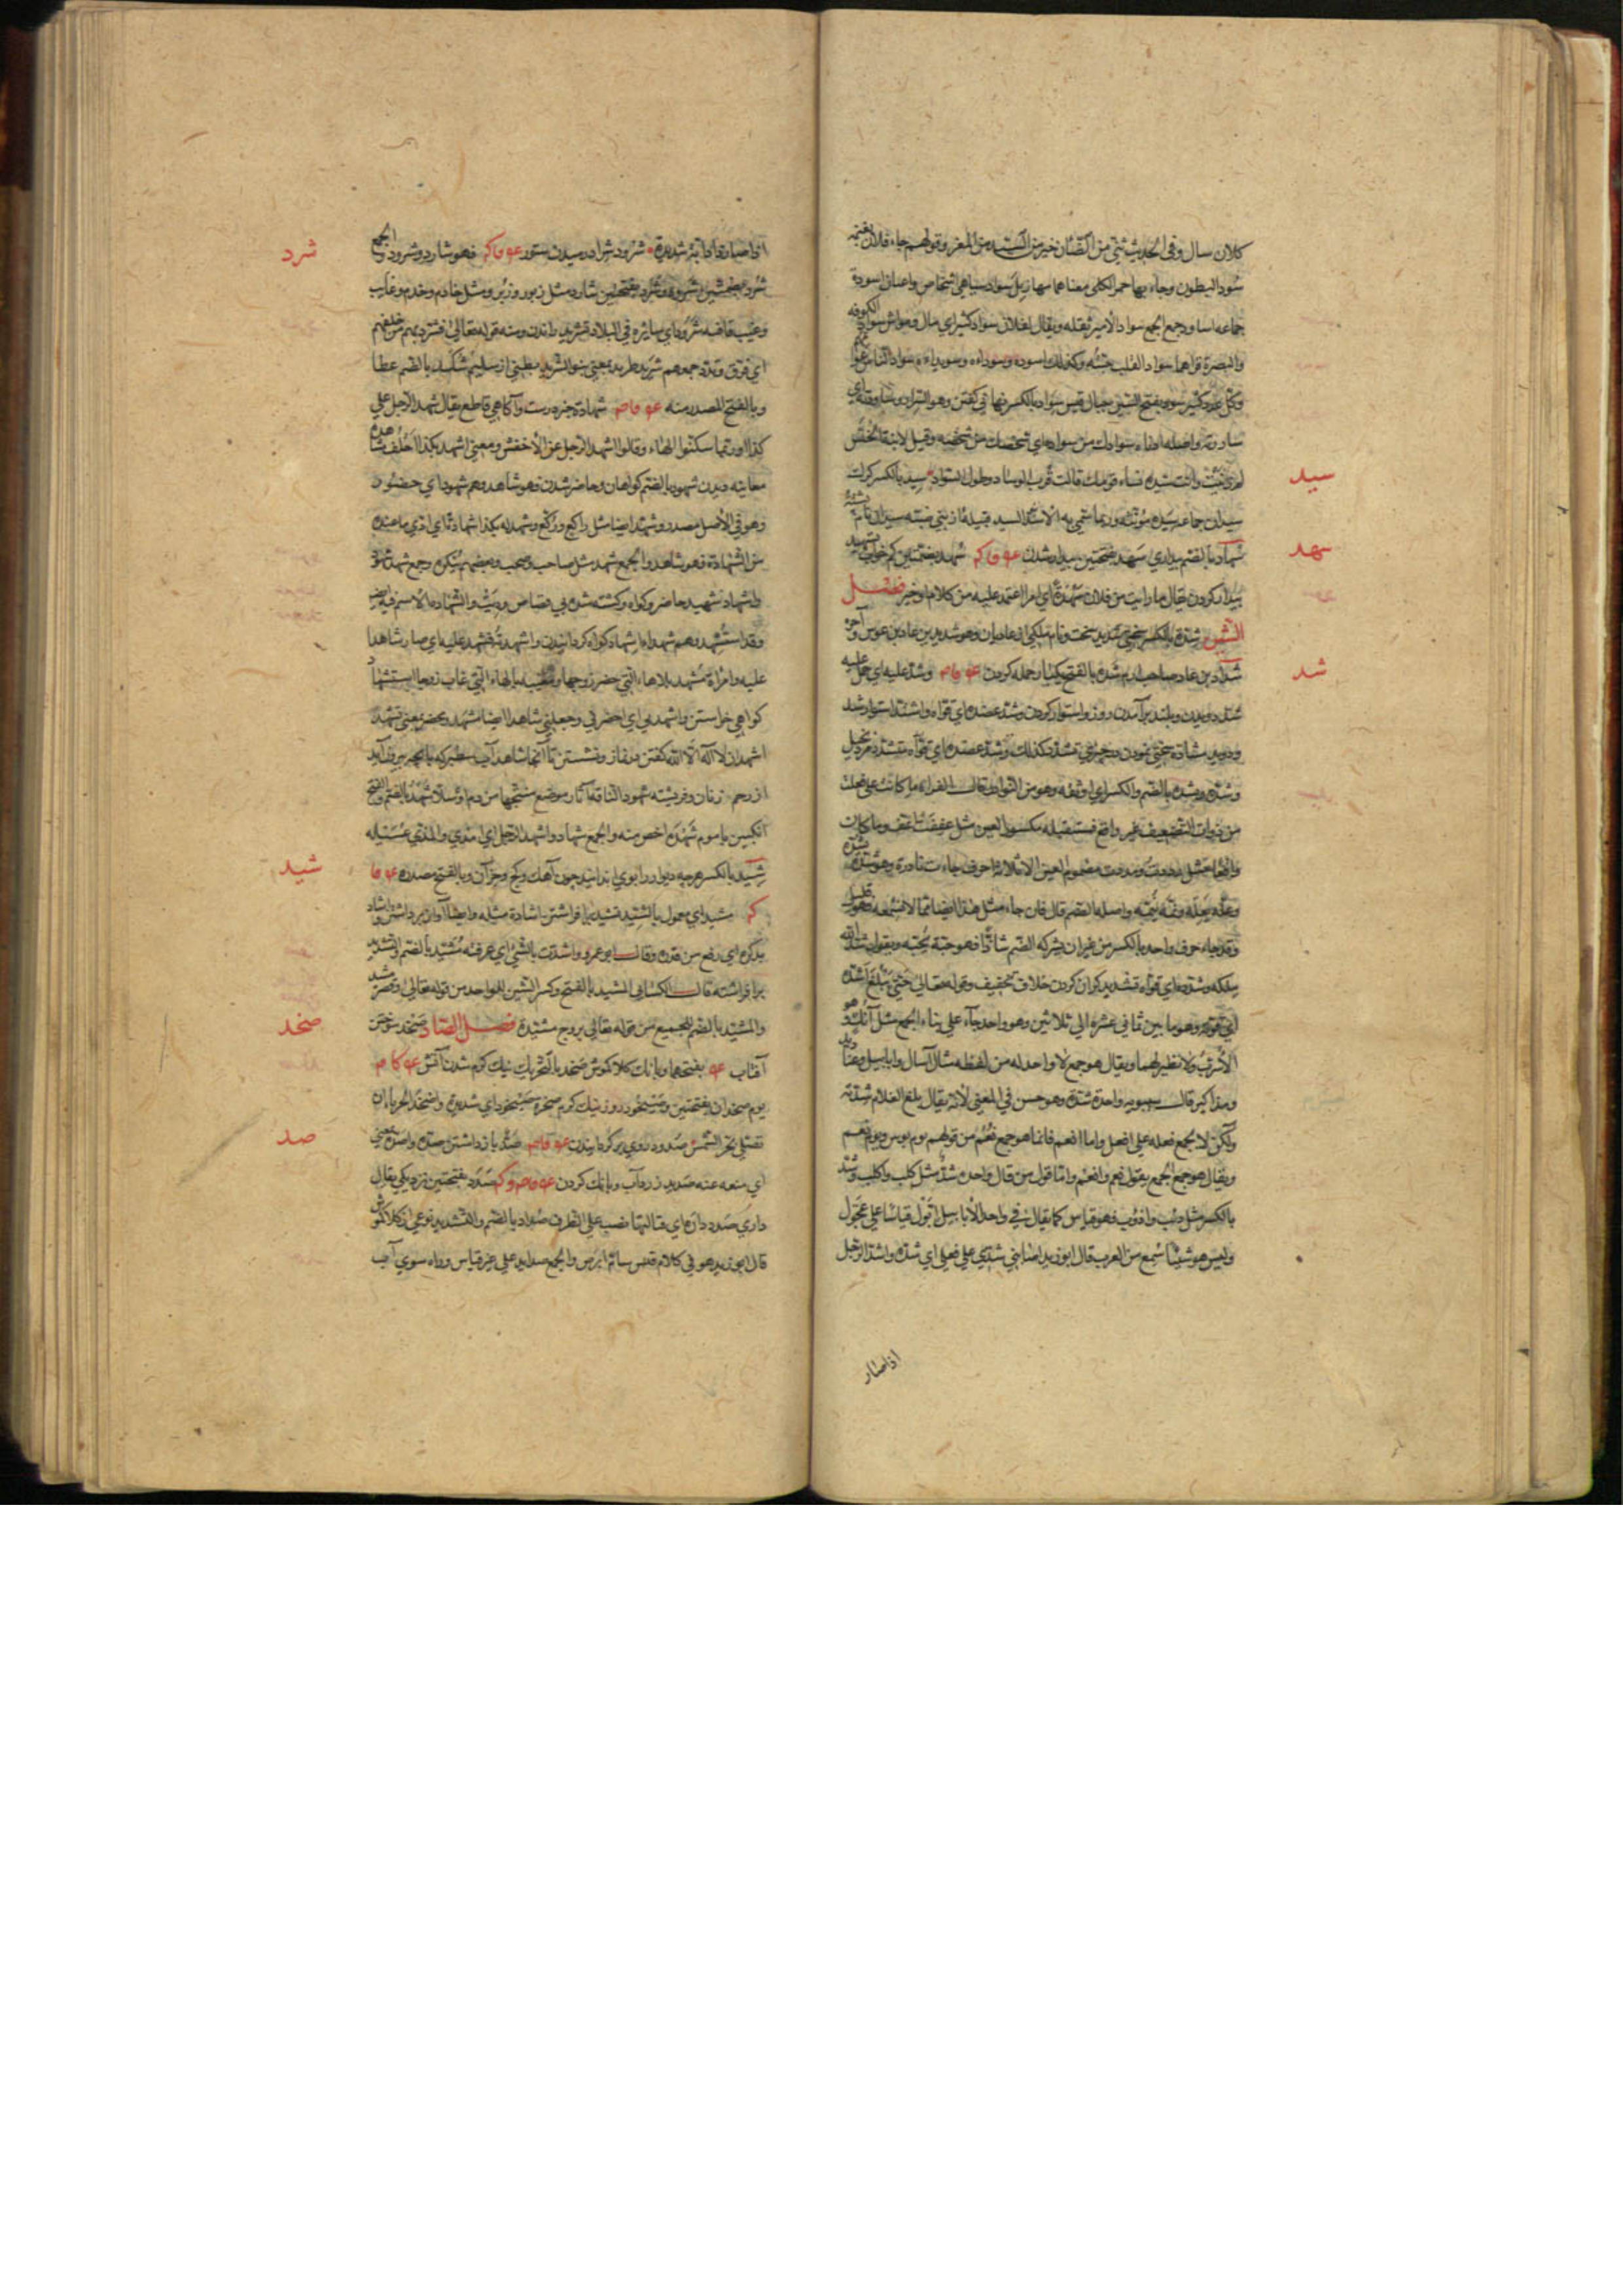 كلان سال وفي الحديث ثني من الضأن خير من السيد من المعز وقولهم جاء فلان بغنمه
سود البطون وجاء بها حمر الكلى معناهما مهازيل سواد سياهي اشخاص واعيان اسودة
جماعه اساود جمع الجمع سواد الامير ثقله ويقال لفلان سواد كثير اي مال ومواشي سواد الكوفة
والبصرة قراهما سواد القلب حبته وكذلك اسوده وسوداءه وسويداءه سواد الناس عوامهم
وكل عدد كثير سود بفتح السين جبال قيس سواد بالكسر نهاني كفتن وهو السراد
سيد
لم خنيت وانت سيدة نساء قومك قالت قرب الوساد وطول السواد سيد بالكسر كرك
سيدان جماعه سيدة مؤنثه وربما سمي به الاسد السيد قبيلة از بني ضبه سيدان نام پشته
سهد
سهاد بالضم بيداري سهد بفتحتين بيدار شدن ع ف ا ك م سهد بضمتين كم خواب تسهيد
بيدار كردن يقال ما رايت من فلان سهدة اي امرا اعتمد عليه من كلام او خير فصل
الشين شدة بالكسر سختي شديد سخت ونام ملكي از عاديان وهو شديد بن عاد بن عوص وآخر
شد
شداد بن عاد صاحب ارم شدة بالفتح يكبار حمله كردن وشد عليه اي حمل عليه
شد دويدن وبلند برآمدن روز واستوار كردن وشد عضده اي قواه واشتد استوار شد
وشده ويشده بالضم والكسر اي اوثقه وهو من النوادر قال الفراء ما كانت على فعلت
من ذوات التضعيف غير واقع فمستقبله مكسور العين مثل عففت اعف وما كان
واقعا مثل رددت ومددت مضموم العين الا ثلاثة احرف جاءت نادرة وهو شده يشده
وعله يعله ونمه ينمه واصله الضم قال فان جاء مثل هذا ايضا مما لا نسمعه فهو قليل
وقد جاء حرف واحد بالكسر من غير ان يشركه الضم شاذا فهو حبه يحبه ويقول شد الله
ملكه وشدده اي قواه تشديد كران كردن خلاف تخفيف وقوله تعالى حتى يبلغ اشده
اي قوته وهو ما بين ثماني عشرة الى ثلاثين وهو واحد جاء على بناء الجمع مثل آنك وهو
الاسرب ولا نظير لهما ويقال هو جمع لا واحد له من لفظه مثل آسال وابابيل وعباديد
ومذاكير قال سيبويه واحدة شدة وهو حسن في المعنى لانه يقال بلغ الغلام شدته
ولكن لا يجمع فعله على افعل واما انعم فانما هو جمع نعم من قولهم يوم بوس ويوم نعم
ويقال هو جمع الجمع يقول نعم وانعم واما قول من قال واحده شد مثل كلب واكلب وشد
بالكسر مثل ذئب واذؤب فهو قياس كما يقال في واحد الابابيل ابول قياسا على عجول
وليس هو شيئا سمع من العرب قال ابو زيد اصابني شدى على فعلى اي شدة واشد الرجل
اذا صار
شرد
اذا صار معه دابة شديدة شرود شراد رميدن ستور ع ف ا ك م فهو شارد وشرود الجمع
شرد بضمتين وشرود وشرد بفتحتين شارد مثل زبور وزبر ومثل خادم وخدم وغائب
وغيب قافيه شرود اي سائره في البلاد تشريد راندن ومنه قوله تعالى فشرد بهم من خلفهم
اي فرق وبدد جمعهم شريد طريد بمعني بنو الشريد بطني از سليم شكد بالضم عطا
وبالفتح المصدر منه شهادة خبر درست وآكاهي قاطع يقال شهد الرجل على
كذا وربما سكنوا الهاء وقالوا شهد الرجل عن الاخفش ومعنى اشهد بكذا احلف مشاهدة
معاينه ديدن شهود بالضم كواهان وحاضر شدن وهو شاهد وهم شهود اي حضور
وهو في الاصل مصدر وشهد ايضا مثل راكع وركع وشهد له بكذا شهادة اي ادى ما عنده
من الشهادة فهو شاهد والجمع شهد مثل صاحب وصحب وبعضهم ينكره وجمع شهد شهود
واشهاد شهيد حاضر وكواه وكشته شده بي قصاص وديت والشهادة الاسم فيه
وقد استشهد وهم شهداء اشهاد كواه كردانيدن واشهدته فشهد عليه اي صار شاهدا
عليه وامراة مشهد بلا هاء التي حضر زوجها ومغيبه بالهاء التي غاب زوجها استشهاد
كواهي خواستن واشهدني اي احضرني وجعلني شاهدا ايضا مشهد محضر بمعني تشهد
اشهد ان لا اله الا الله كفتن در نماز ونشستن شاهد آب سطبر كه با بچه بيرون آيد
از رحم زنان وفرشته شهود الناقة آثار موضع منتجها من دم او سلا شهد بالضم والفتح
انكبين با موم شهدة اخص منه والجمع شهاد واشهد الرجل اي امذى والمذي عسيله
شيد
شيد بالكسر هرچه ديوار را بوي اندايند چون آهك وكچ وجز آن وبالفتح مصدره ع ف ا
ك م مشيد اي معمول بالشيد تشييد برافراشتن اشادة مثله وايضا آواز برداشتن واشاد
بذكره اي رفع من قدره وقال ابو عمرو واشدت بالشيء اي عرفته مشيد بالضم والتشديد
برافراشته قال الكسائي المشيد بالفتح وكسر الشين للواحد من قوله تعالى وقصر مشيد
صخد
والمشيد بالضم للجميع من قوله تعالى بروج مشيدة فصل الصاد صخد سوختن
آفتاب بفتحهما وبانك كلاكموش صخد بالتحريك نيك كرم شدن آتش
يوم صخدان بفتحتين وصيخود روز نيك كرم صخرة صيخود اي شديدة واصخد الحرباء ان
صد
تصلى بحر الشمس صدود روي بركردانيدن صد بازداشتن صده واصده بمعني
اي منعه عنه صديد زردآب وبانك كردن صدد بفتحتين نزديكي يقال
داري صدد داره اي قبالتها نصب على الظرف صداد بالضم والتشديد نوعي از كلاكموش
قال ابو زيد هو في كلام قيس سام ابرص والجمع صدايد على غير قياس وراه سوي آب